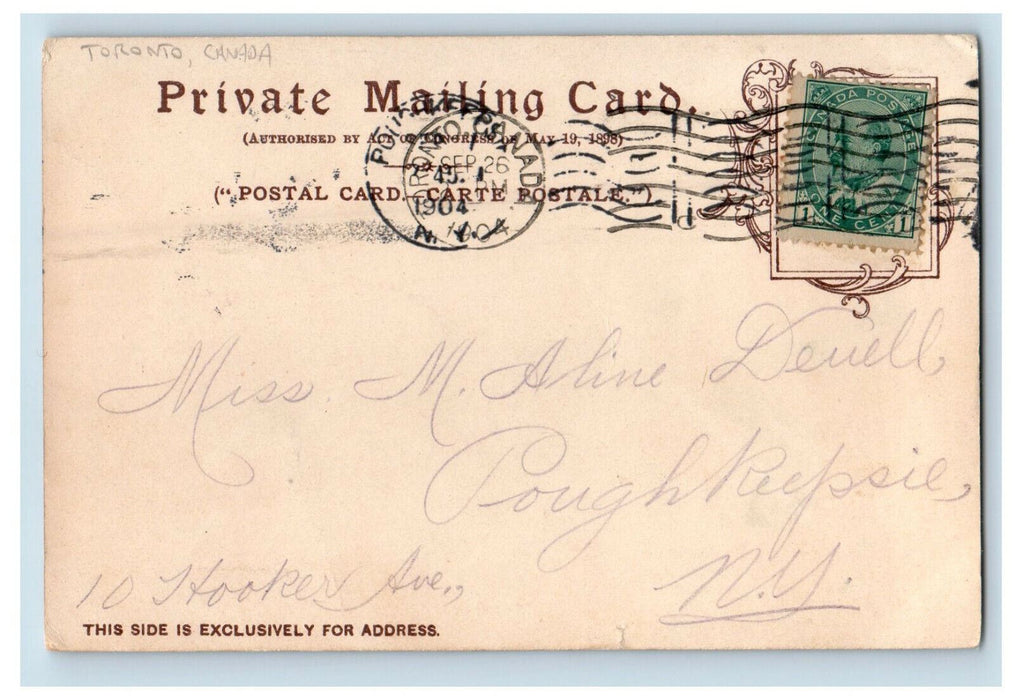 TORONTO, CANADA
Private Mailing Card.
(AUTHORISED BY ACT OF CONGRESS OF MAY 19, 1898)
("POSTAL CARD. CARTE POSTALE.")
TORONTO CANADA
SEP 26
1904
N.Y. 1904
CANADA POSTAGE
ONE CENT
1 1
Miss. M. Aline Deuell,
Poughkeepsie,
10 Hooker Ave., N.Y.
THIS SIDE IS EXCLUSIVELY FOR ADDRESS.